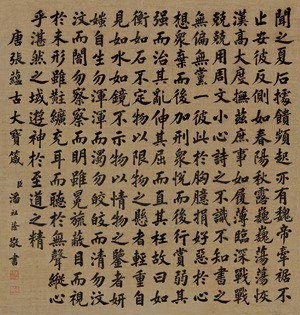 聞之夏后據饋頻起亦有魏帝牽裾不
止安彼反側如春陽秋露巍巍蕩蕩恢
漢高大度撫茲庶事如履薄臨深戰戰
兢兢用周文小心詩之不識不知書之
無偏無黨一彼此於胸臆捐好惡於心
想衆棄而後加刑衆悅而後行賞弱其
強而治其亂伸其屈而直其枉故曰如
衡如石不定物以限物之懸者輕重自
見如水如鏡不示物以情物之鑒者妍
媸自生勿渾渾而濁勿皎皎而清勿汶
汶而闇勿察察而明雖冕旒蔽目而視
於未形雖黈纊充耳而聽於無聲縱心
乎湛然之域遊神於至道之精
唐張蘊古大寶箴 臣潘祖蔭敬書